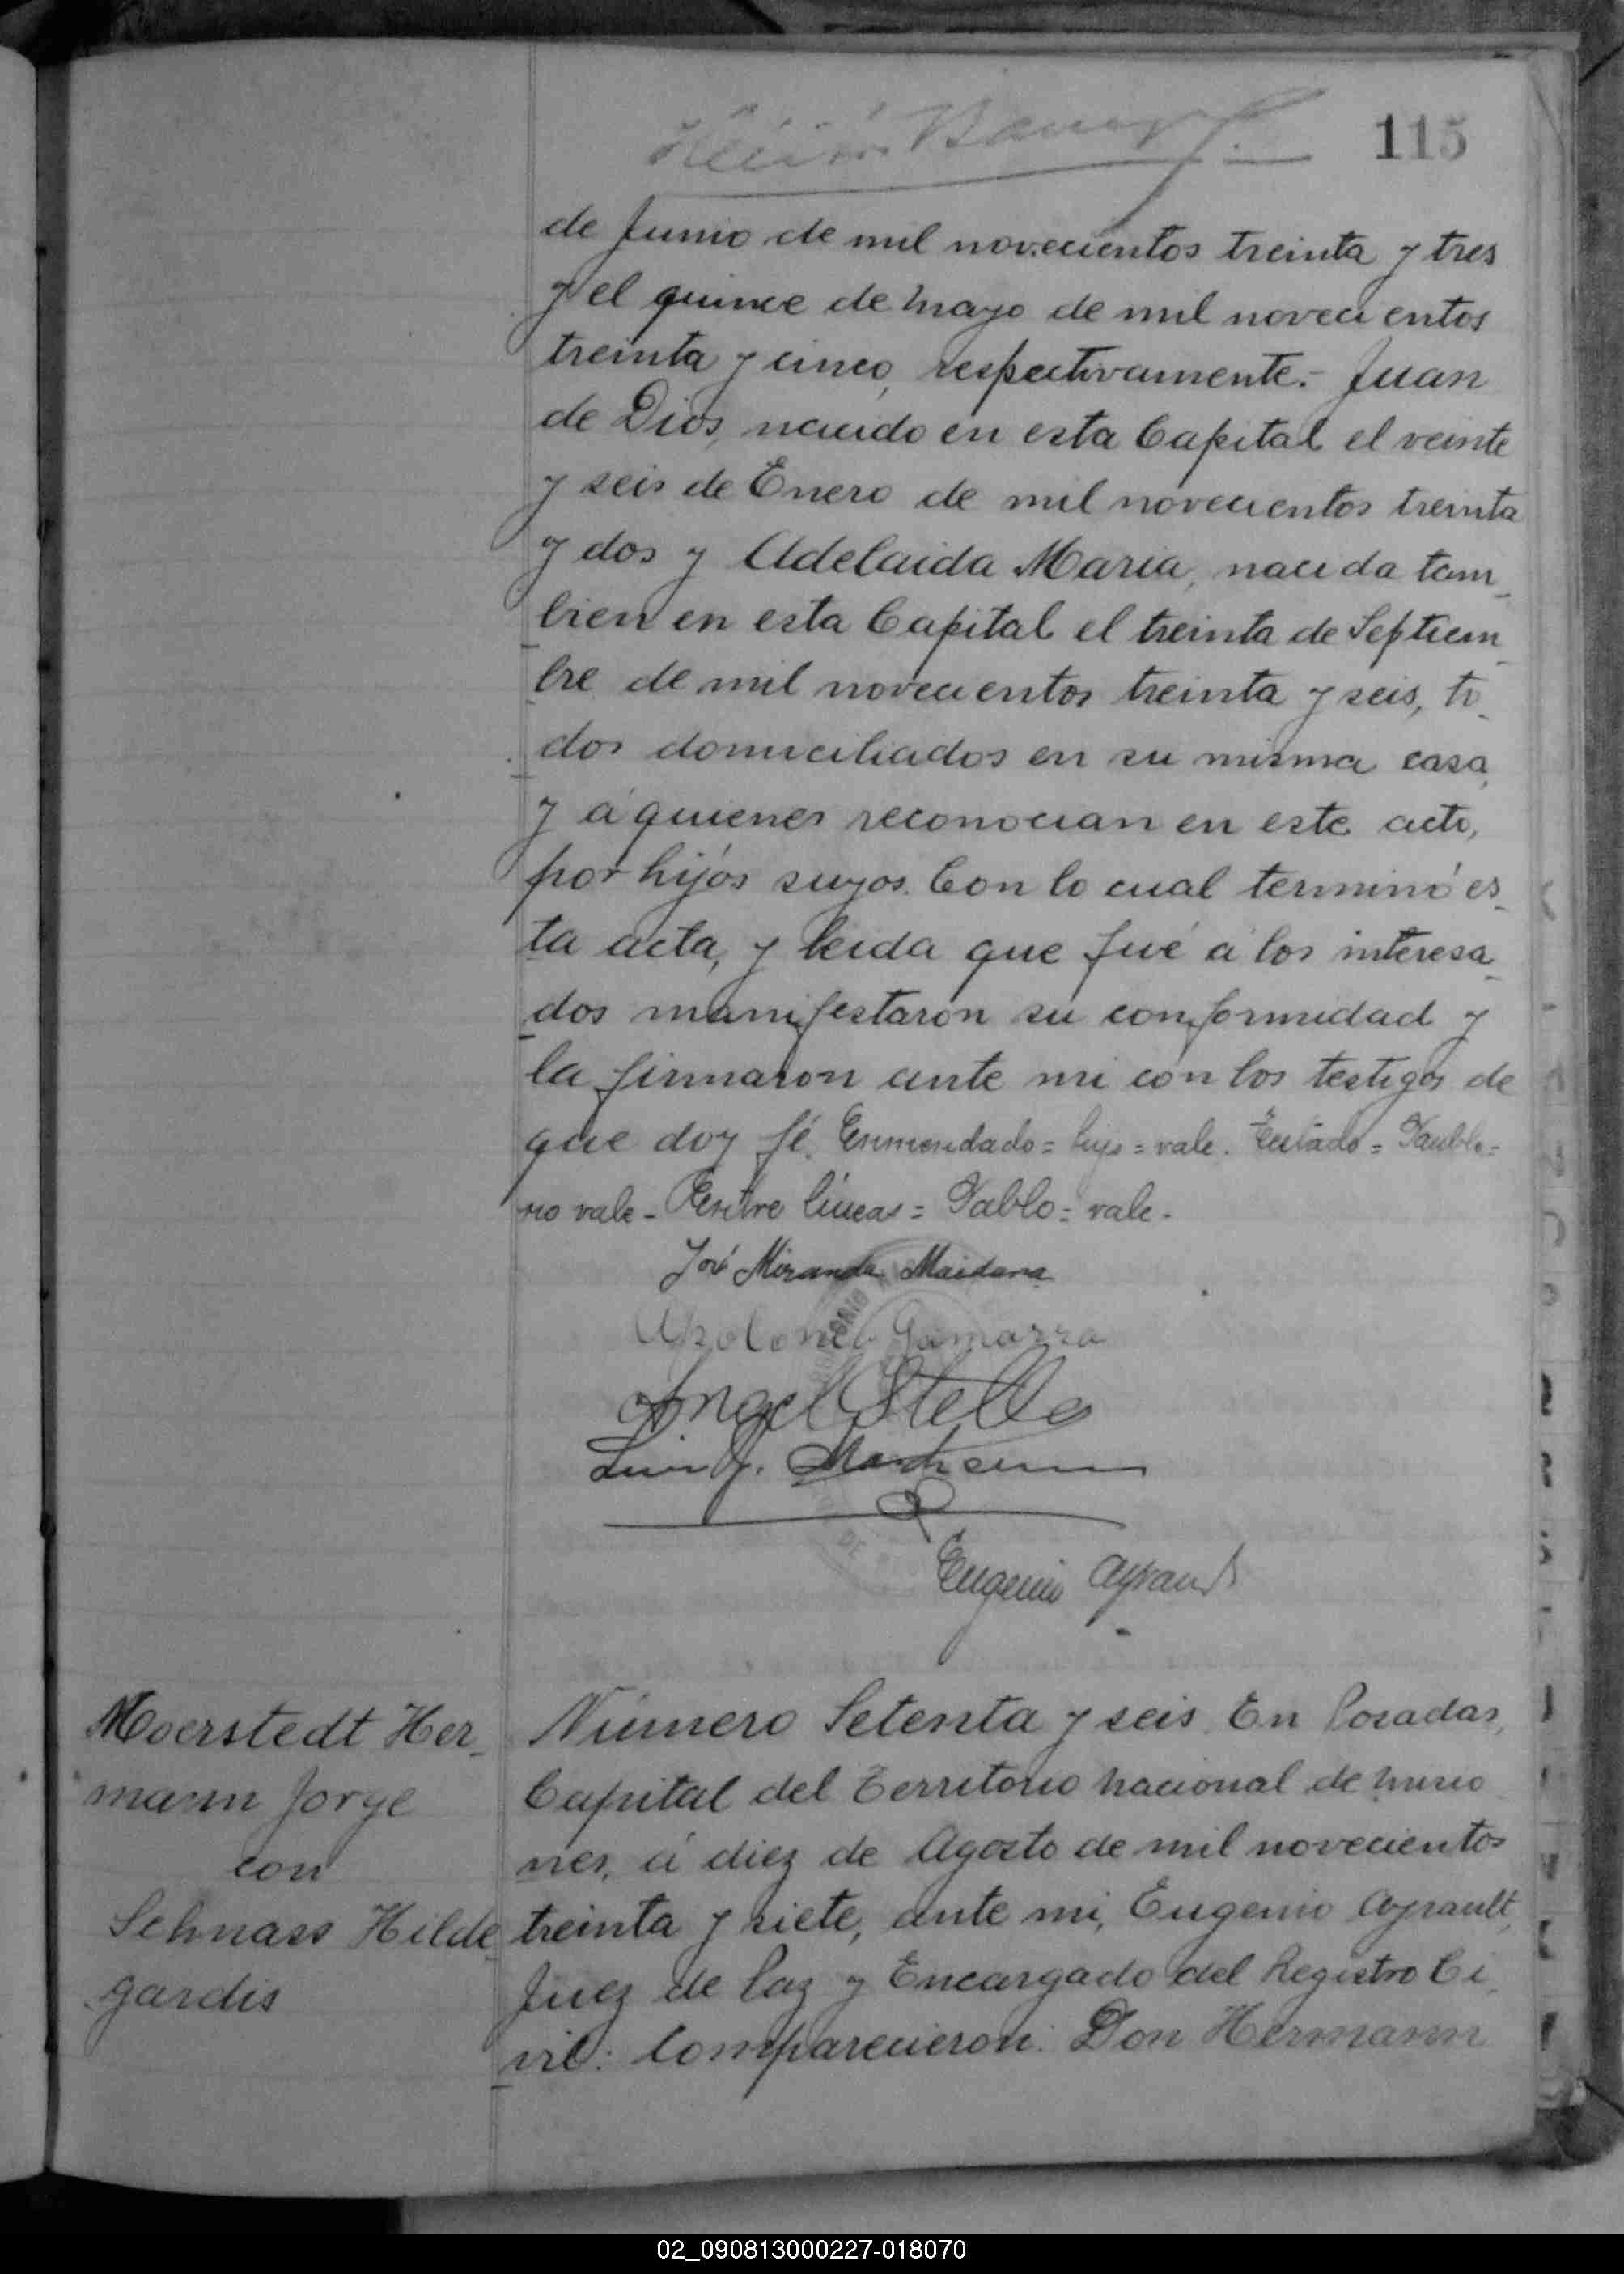 115
de Junio de mil novecientos treinta y tres
y el quince de Mayo de mil novecientos
treinta y cinco, respectivamente.- Juan
de Dios, nacido en esta Capital el veinte
y seis de Enero de mil novecientos treinta
y dos y Adelaida Maria, nacida tam_
bien en esta Capital el treinta de Septiem_
bre de mil novecientos treinta y seis, to_
dos domiciliados en su misma casa,
y á quienes reconocian en este acto,
por hijos suyos. Con lo cual terminó es_
ta acta, y leida que fué á los interesa_
dos manifestaron su conformidad y
la firmaron ante mi con los testigos de
que doy fé. Enmendado = hijo = vale. Testado =
no vale - Entre lineas = Pablo = vale.
José Miranda Maidana
Apolonia Gamarra
Angel Stella
Luis
Eugenio Ayrault
Moerstedt Her_
mann Jorge
con
Schnass Hilde_
gardis
Número Setenta y seis. En Posadas,
Capital del Territorio Nacional de Misio_
nes, á diez de Agosto de mil novecientos
treinta y siete, ante mi, Eugenio Ayrault,
Juez de Paz y Encargado del Registro Ci_
vil: Comparecieron: Don Hermann
02_090813000227-018070